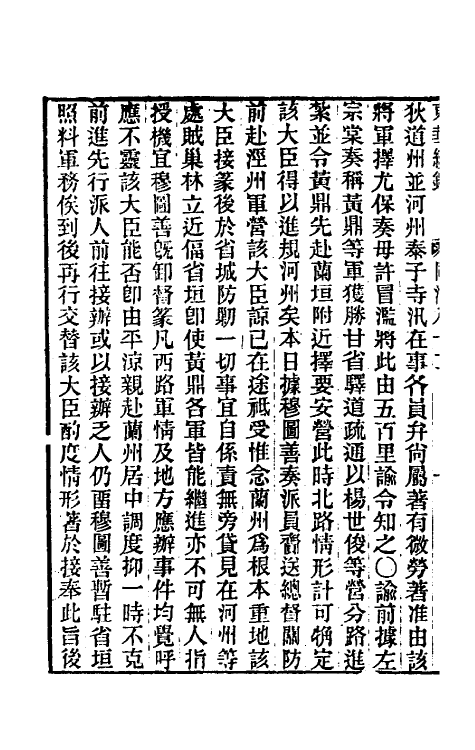 狄道州並河州泰子寺汛在事各員弁尙屬著有微勞著准由該
將軍擇尤保奏毋許冒濫將此由五百里諭令知之○諭前據左
宗棠奏稱黃鼎等軍獲勝甘省驛道疏通以楊世俊等營分路進
紮並令黃鼎先赴蘭垣附近擇要安營此時北路情形計可稍定
該大臣得以進規河州矣本日據穆圖善奏派員齎送總督關防
前赴涇州軍營該大臣諒已在途祗受惟念蘭州爲根本重地該
大臣接篆後於省城防勦一切事宜自係責無旁貸見在河州等
處賊巢林立近偪省垣卽使黃鼎各軍皆能繼進亦不可無人指
授機宜穆圖善旣卸督篆凡西路軍情及地方應辦事件均覺呼
應不靈該大臣能否卽由平涼親赴蘭州居中調度抑一時不克
前進先行派人前往接辦或以接辦乏人仍畱穆圖善暫駐省垣
照料軍務俟到後再行交替該大臣酌度情形著於接奉此旨後